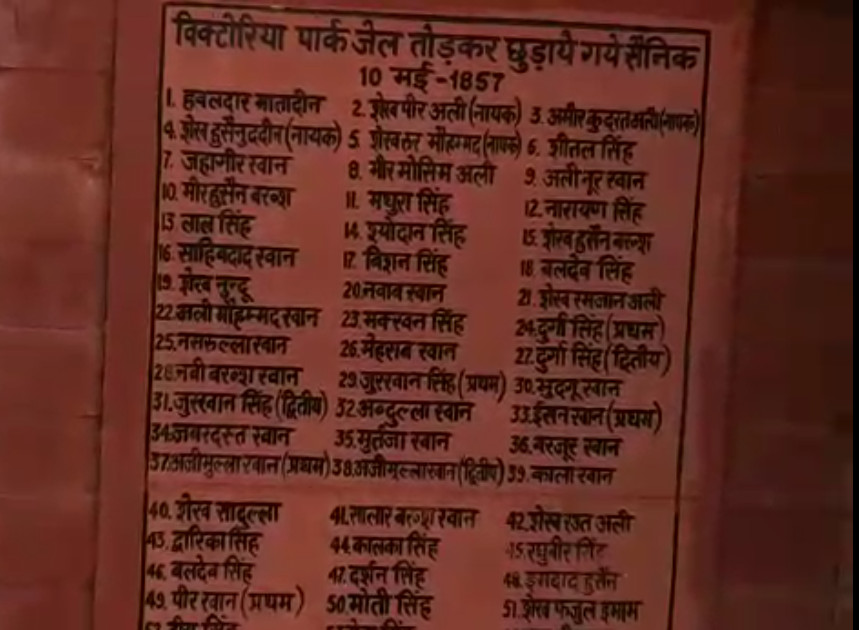 विक्टोरिया पार्क जेल तोड़कर छुड़ाये गये सैनिक
10 मई -1857
1. हवलदार मातादीन 2. शेख पीर अली (नायक) 3. अमीर कुदरत अली (नायक)
4. शेख हुसैनुददीन (नायक) 5. शेख नूर मौहम्मद (नायक) 6. शीतल सिंह
7. जहागीर खान 8. मीर मोसिम अली 9. अली नूर खान
10. मीर हुसैन बख्श 11. मथुरा सिंह 12. नारायण सिंह
13 लाल सिंह 14. श्योदान सिंह 15. शेख हुसैन बख्श
16. साहिबदाद खान 17. बिशन सिंह 18. बलदेव सिंह
19. शेख नुन्दू 20. नवाब खान 21. शेख रमजान अली
22. अली मौहम्मद खान 23. मक्खन सिंह 24. दुर्गा सिंह (प्रथम)
25. नसरुल्ला खान 26. मेहराब खान 27. दुर्गा सिंह (द्वितीय)
28. नबी बख्श खान 29. जुरखान सिंह (प्रथम) 30. खान
31. जुरखान सिंह (द्वितीय) 32 अब्दुल्ला खान 33. ईसन खान (प्रथम)
34. जबरदस्त खान 35. मुर्तजा खान 36. बरजूर खान
37. अजीमुल्ला खान (प्रथम) 38. अजीमुल्ला खान (द्वितीय) 39. काला खान
40. शेख सादुल्ला 41. सालार बख्श खान 42. शेख अली
43. द्वारिका सिंह 44. कालका सिंह 45 रघुबीर सिंह
46. बलदेव सिंह 47. दर्शन सिंह 48. इमदाद हुसैन
49. पीर खान (प्रथम) 50. मोती सिंह 51. शेख फजुल इमाम